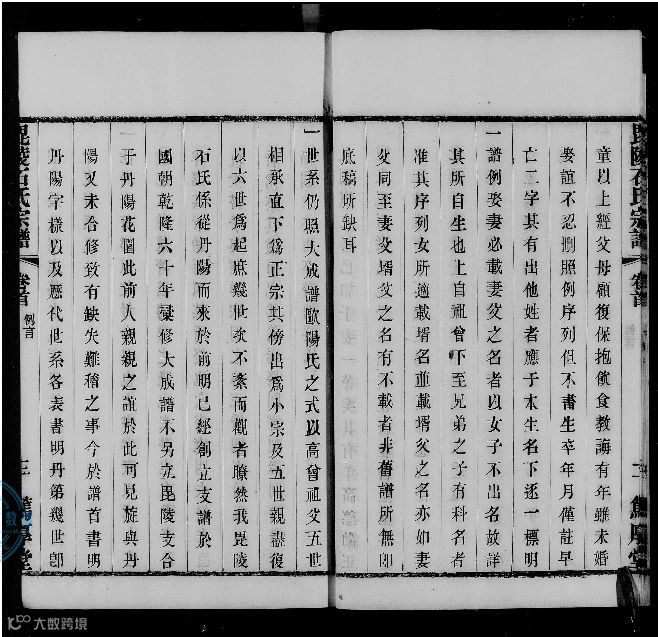 毘陵石氏宗譜 卷首 例言 二 篤厚堂
童以上經父母顧復保抱飲食教誨有年雖未婚
娶誼不忍刪照例序列但不書生卒年月僅註早
亡二字其有出他姓者應于本生名下逐一標明
一譜例娶妻必載妻父之名者以女子不出名故詳
其所自生也上自祖曾下至兄弟之子有科名者
准其序列女所適載壻名並載壻父之名亦如妻
父同至妻父壻父之名有不載者非舊譜所無即
底稿所缺耳
一世系仍照大成譜歐陽氏之式以高曾祖父五世
相承直下爲正宗其傍出爲小宗及五世親盡復
以六世爲起庶幾世次不紊而觀者瞭然我毘陵
石氏係從丹陽而來於前明已經創立支譜於
國朝乾隆六十年彚修大成譜不另立毘陵支合
于丹陽花個此前人親親之誼於此可見旋與丹
陽又未合修致有缺失難稽之事今於譜首書明
丹陽字樣以及歷代世系各表書明丹第幾世卽
毘陵石氏宗譜 卷首 例言 三 篤厚堂
大数跨境